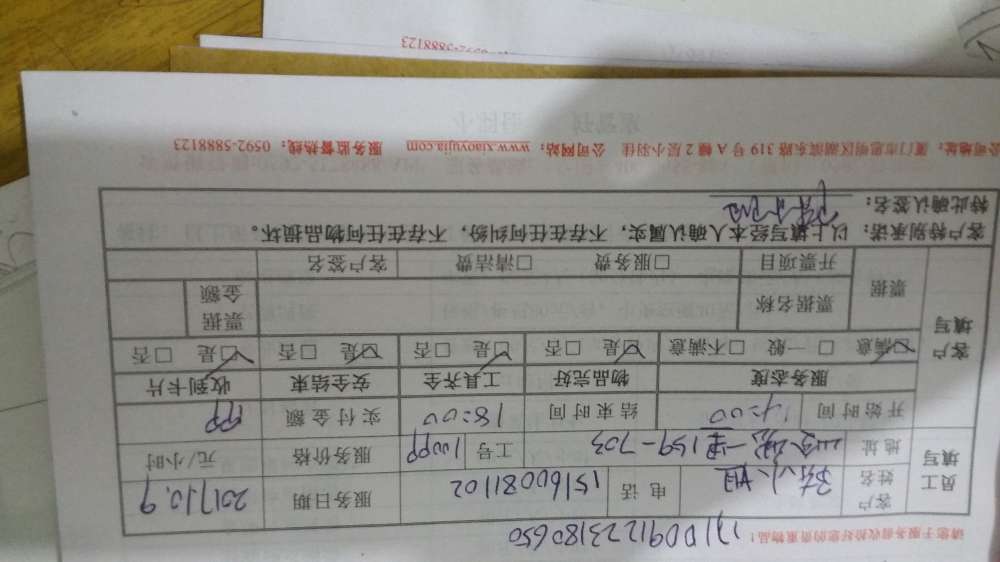 请您于服务前收拾好您的贵重物品！ 1710091223180650
员工填写 客户姓名 陈小姐 电话 15160081102 服务日期 2017.10.9
地址 一里159-703 工号 服务价格 元/小时
开始时间 14:00 结束时间 18:00 实付金额
客户填写 服务态度 物品完好 工具齐全 安全结束 收到卡片
☑满意 □一般 □不满意 ☑是 □否 ☑是 □否 ☑是 □否 ☑是 □否
票据 票据名称 票据金额
开票项目 □服务费 □清洁费 客户签名
客户特别承诺：以上填写经本人确认属实，不存在任何纠纷，不存在任何物品损坏。
特此确认签名：
公司地址：厦门市思明区湖滨东路 319 号 A 幢 2 层小羽佳 公司网站：www.xiaoyujia.com 服务监督热线：0592-5888123
0592-5888123